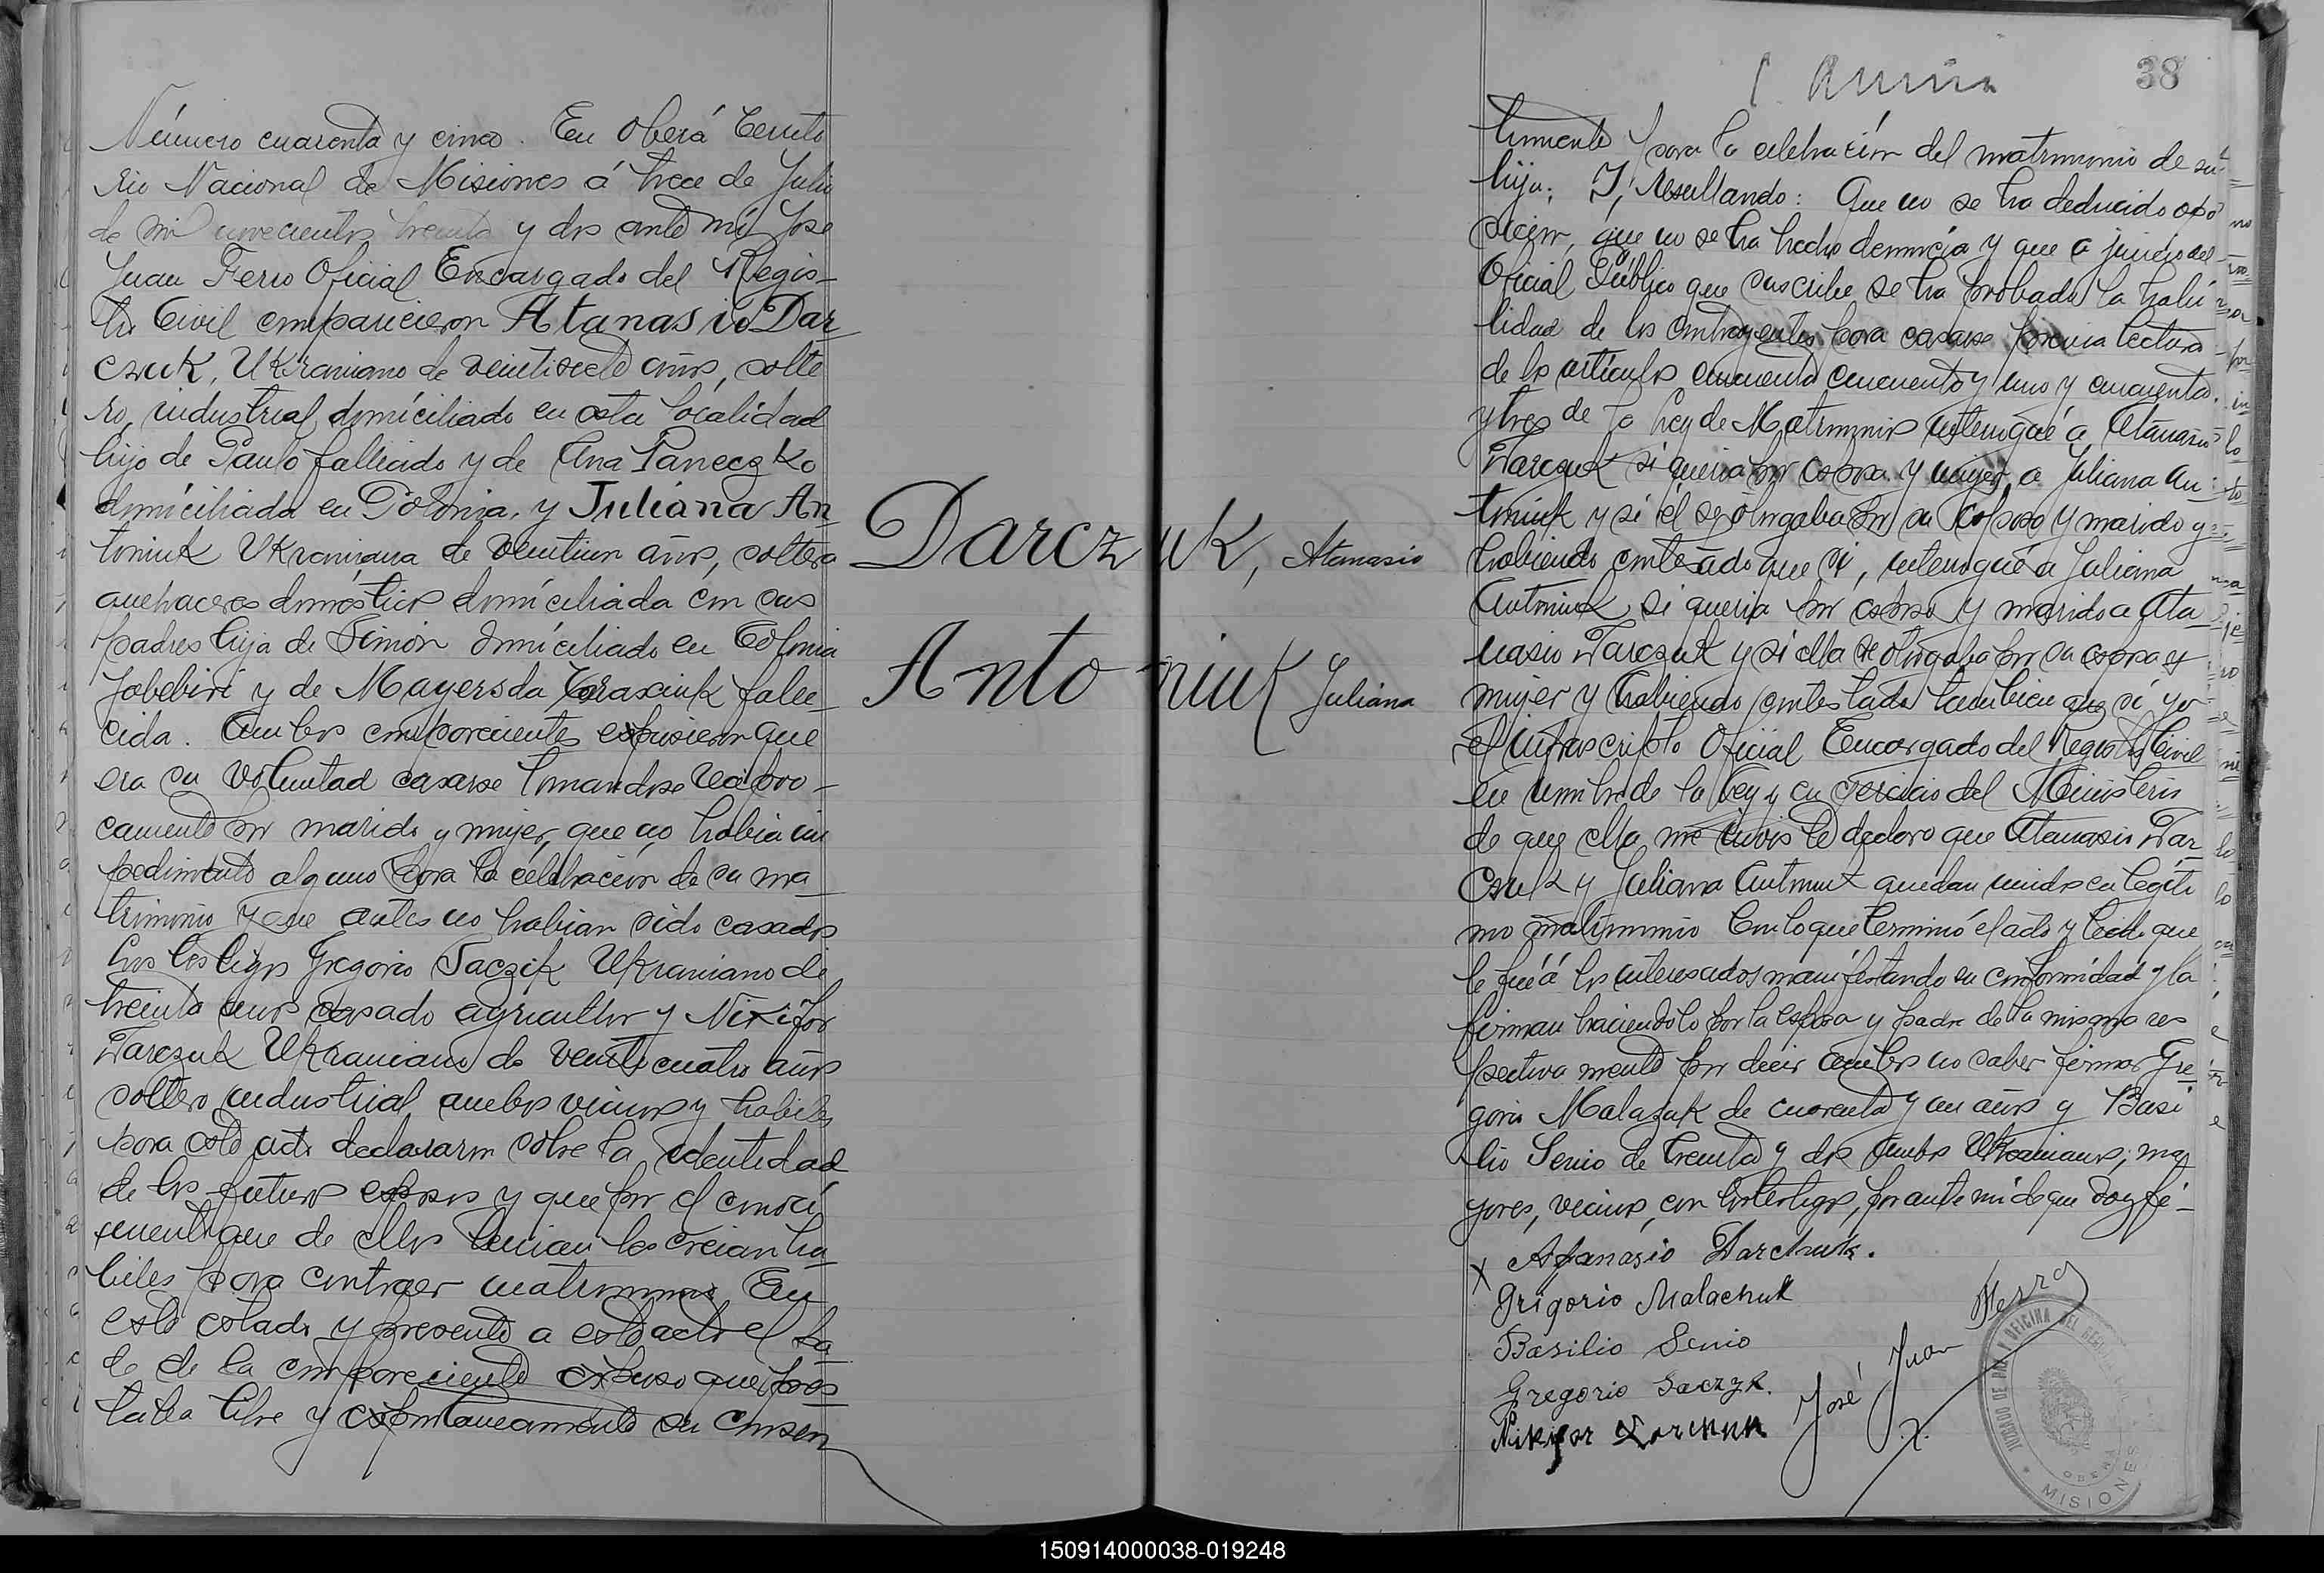 Número cuarenta y cinco. En Oberá Territo
rio Nacional de Misiones á trece de Julio
de mil novecientos treinta y dos ante mí José
Juan Ferro Oficial Encargado del Regis-
tro Civil comparecieron Atanasio Dar
czuk, Ukraniano de veintisiete años, solte
ro, industrial domiciliado en esta localidad
hijo de Paulo fallecido y de Ana Paneczko
domiciliada en Polonia, y Juliana An
toniuk Ukraniana de veintiun años, soltera
quehaceres domésticos domiciliada con sus
padres hija de Simón domiciliado en Colonia
Yabebirí y de Mayersda falle
cida. Ambos comparecientes expusieron que
era su voluntad casarse tomandose recipro-
camente por marido y mujer, que no habia im
pedimento alguno para la celebración de su ma
trimonio y que antes no habian sido casados
Los testigos Gregorio Saczik Ukraniano de
treinta años casado agricultor y Nikifor
Darczuk Ukraniano de veinticuatro años
soltero industrial ambos vecinos y habiles
para este acto declararon sobre la identidad
de los futuros esposos y que por el conoci
miento que de ellos tenian los creian ha
biles para contraer matrimonio En
este estado y presente a este acto el pa
de de la compareciente expuso que pres
taba libre y espontaneamente su consen
Darczuk, Atanasio
Antoniuk Juliana
38
timiento para la celebración del matrimonio de su
hija. Y, Resultando: Que no se ha deducido opo
sición, que no se ha hecho denuncia y que a juicio del
Oficial Público que suscribe se ha probado la habi
lidad de los contrayentes para casarse previa lectura
de los artículos cincuenta cincuenta y uno y cincuenta
y tres de la Ley de Matrimonio interrogué a Atanasio
Darczuk si queria por esposa y mujer a Juliana An
toniuk y si él se otorgaba por su esposo y marido y
habiendo contestado que si, interrogué a Juliana
Antoniuk si queria por esposo y marido a Ata
nasio Darczuk y si ella se otorgaba por su esposa y
mujer y habiendo contestado tambien que si yo
el infrascripto Oficial Encargado del Registro Civil
en nombre de la Ley y en ejercicio del Ministerio
de que ella me inviste declaro que Atanasio Dar
czuk y Juliana Antoniuk quedan unidos en legíti
mo matrimonio Con lo que terminó el acto y leida que
le fué á los interesados manifestando su conformidad y la
firman haciendolo por la esposa y padre de la misma res
pectivamente por decir ambos no saber firmar Gre
gorio Malazuk de cuarenta y un años y Basi
lio Senio de treinta y dos ambos Ukranianos, ma
yores, vecinos, con los testigos, por ante mi de que doy fé-
x Afanasio Darchuk.
Grigorio Malachuk
Basilio Senio
Gregorio Saczyk.
Nikifor
José Juan Ferro
JUZGADO DE PAZ Y OFICINA DEL REGISTRO
OBERÁ
MISIONES
150914000038-019248